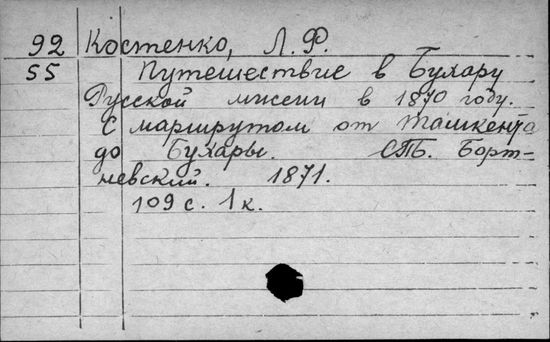 92 Костенко, Л. Ф.
55 Путешествие в Бухару
Русской миссии в 1870 году.
С маршрутом от Ташкента
до Бухары. СПБ. Борт-
невский. 1871.
109 с. 1 к.